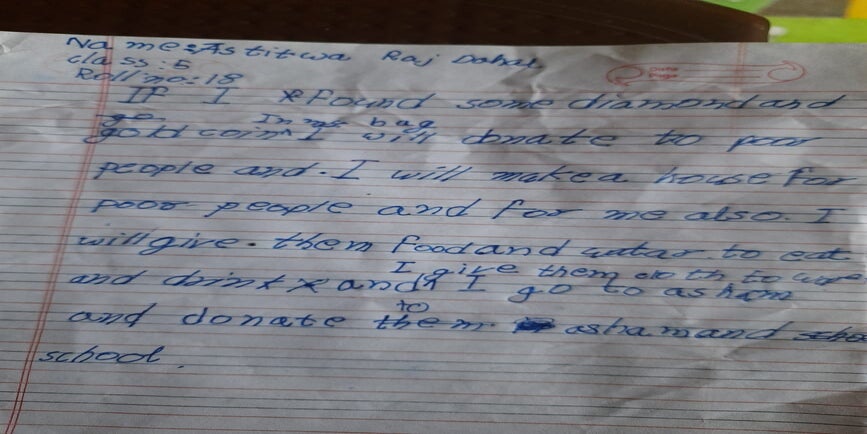 Name: Astitwa Raj Dahal
class: 5
Roll no: 18
If I found some diamond and
gold coin In bag I will donate to poor
people and. I will make a house for
poor people and for me also. I
will give. them food and watar. to eat
and drink and I give them cloth to I go to asham
and donate to them asham and scho
school.